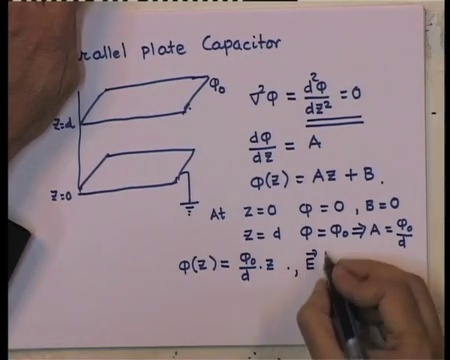 rallel plate Capacitor
φ₀
∇²φ = d²φ/dz² = 0
z=d
dφ/dz = A
φ(z) = Az + B.
z=0
At z=0 φ=0 , B=0
z=d φ=φ₀ ⇒ A = φ₀/d
φ(z) = φ₀/d . z . , E⃗